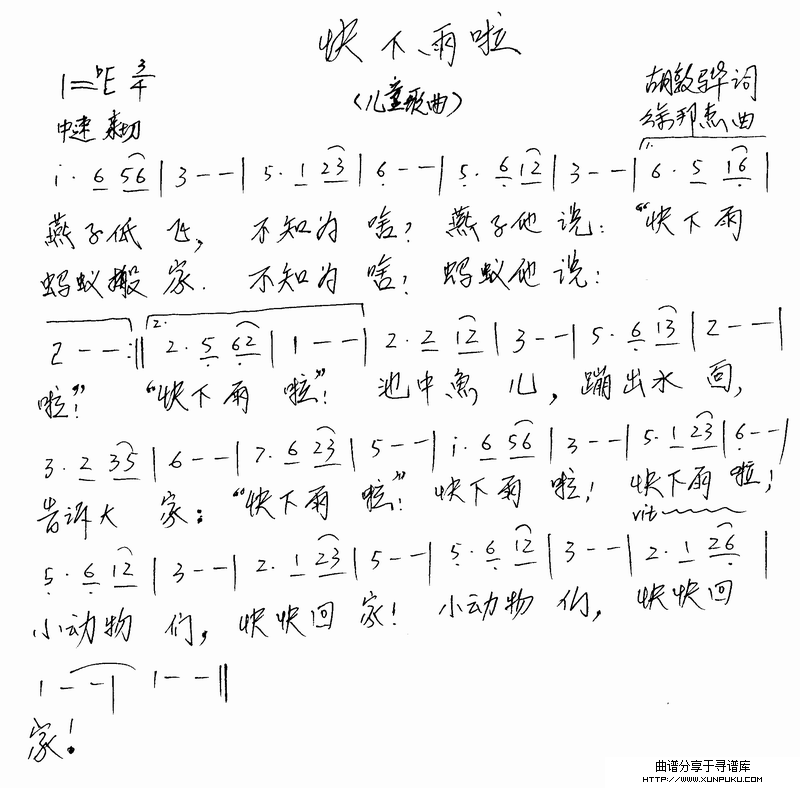 快下雨啦
1=♭E 3/4
(儿童歌曲)
中速 亲切
胡敦骅 词
徐邦杰 曲
i· 6 56 | 3 - - | 5· 1 23 | 6 - - | 5· 6 12 | 3 - - | 1. 6· 5 16 |
燕子低 飞, 不知为 啥? 燕子他 说: “快下雨
蚂蚁搬 家. 不知为 啥? 蚂蚁他 说:
2 - - :‖ 2. 2· 5 62 | 1 - - | 2· 2 12 | 3 - - | 5· 6 13 | 2 - - |
啦”! “快下雨 啦”! 池中鱼 儿, 蹦出水 面,
3· 2 35 | 6 - - | 7· 6 23 | 5 - - | i· 6 56 | 3 - - | 5· 1 23 | 6 - - |
告诉大 家: “快下雨 啦”! 快下雨 啦! 快下雨 啦!
rit
5· 6 12 | 3 - - | 2· 1 23 | 5 - - | 5· 6 12 | 3 - - | 2· 1 26 |
小动物 们, 快快回 家! 小动物 们, 快快回
1 - - | 1 - - ‖
家!
曲谱分享于寻谱库
HTTP://WWW.XUNPUKU.COM